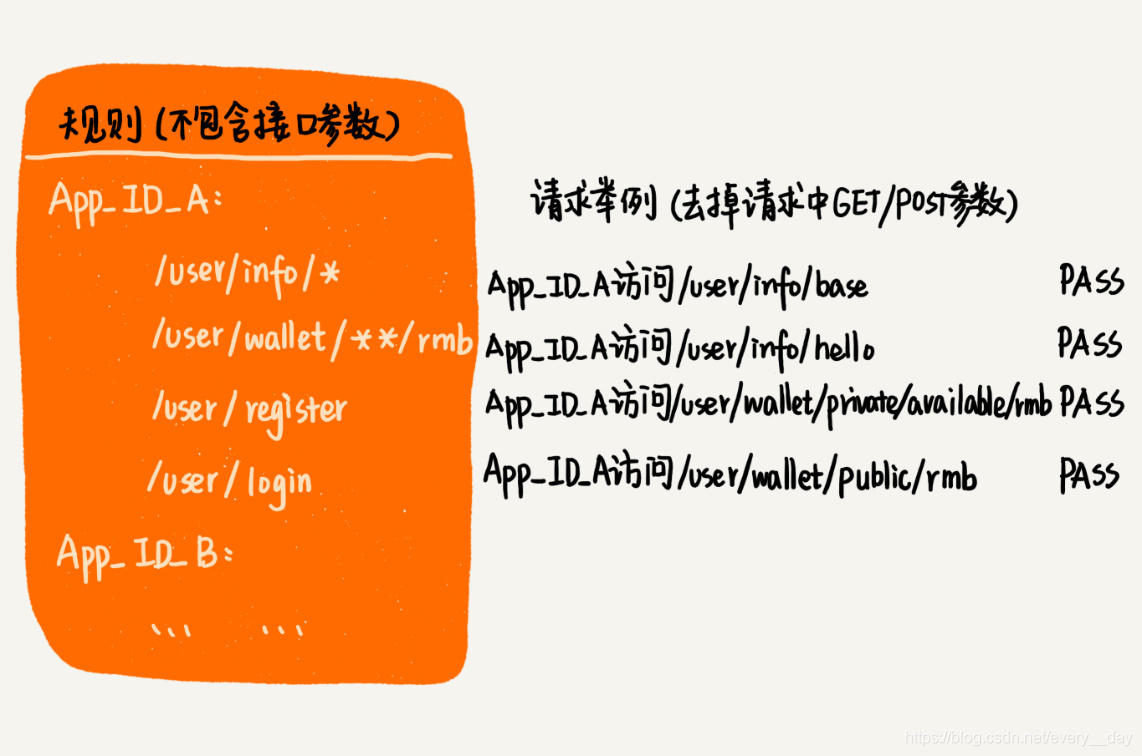 规则(不包含接口参数)
App_ID_A:
/user/info/*
/user/wallet/**/rmb
/user/register
/user/login
App_ID_B:
... ...
请求举例(去掉请求中GET/POST参数)
App_ID_A访问/user/info/base PASS
App_ID_A访问/user/info/hello PASS
App_ID_A访问/user/wallet/private/available/rmb PASS
App_ID_A访问/user/wallet/public/rmb PASS
https://blog.csdn.net/every__day